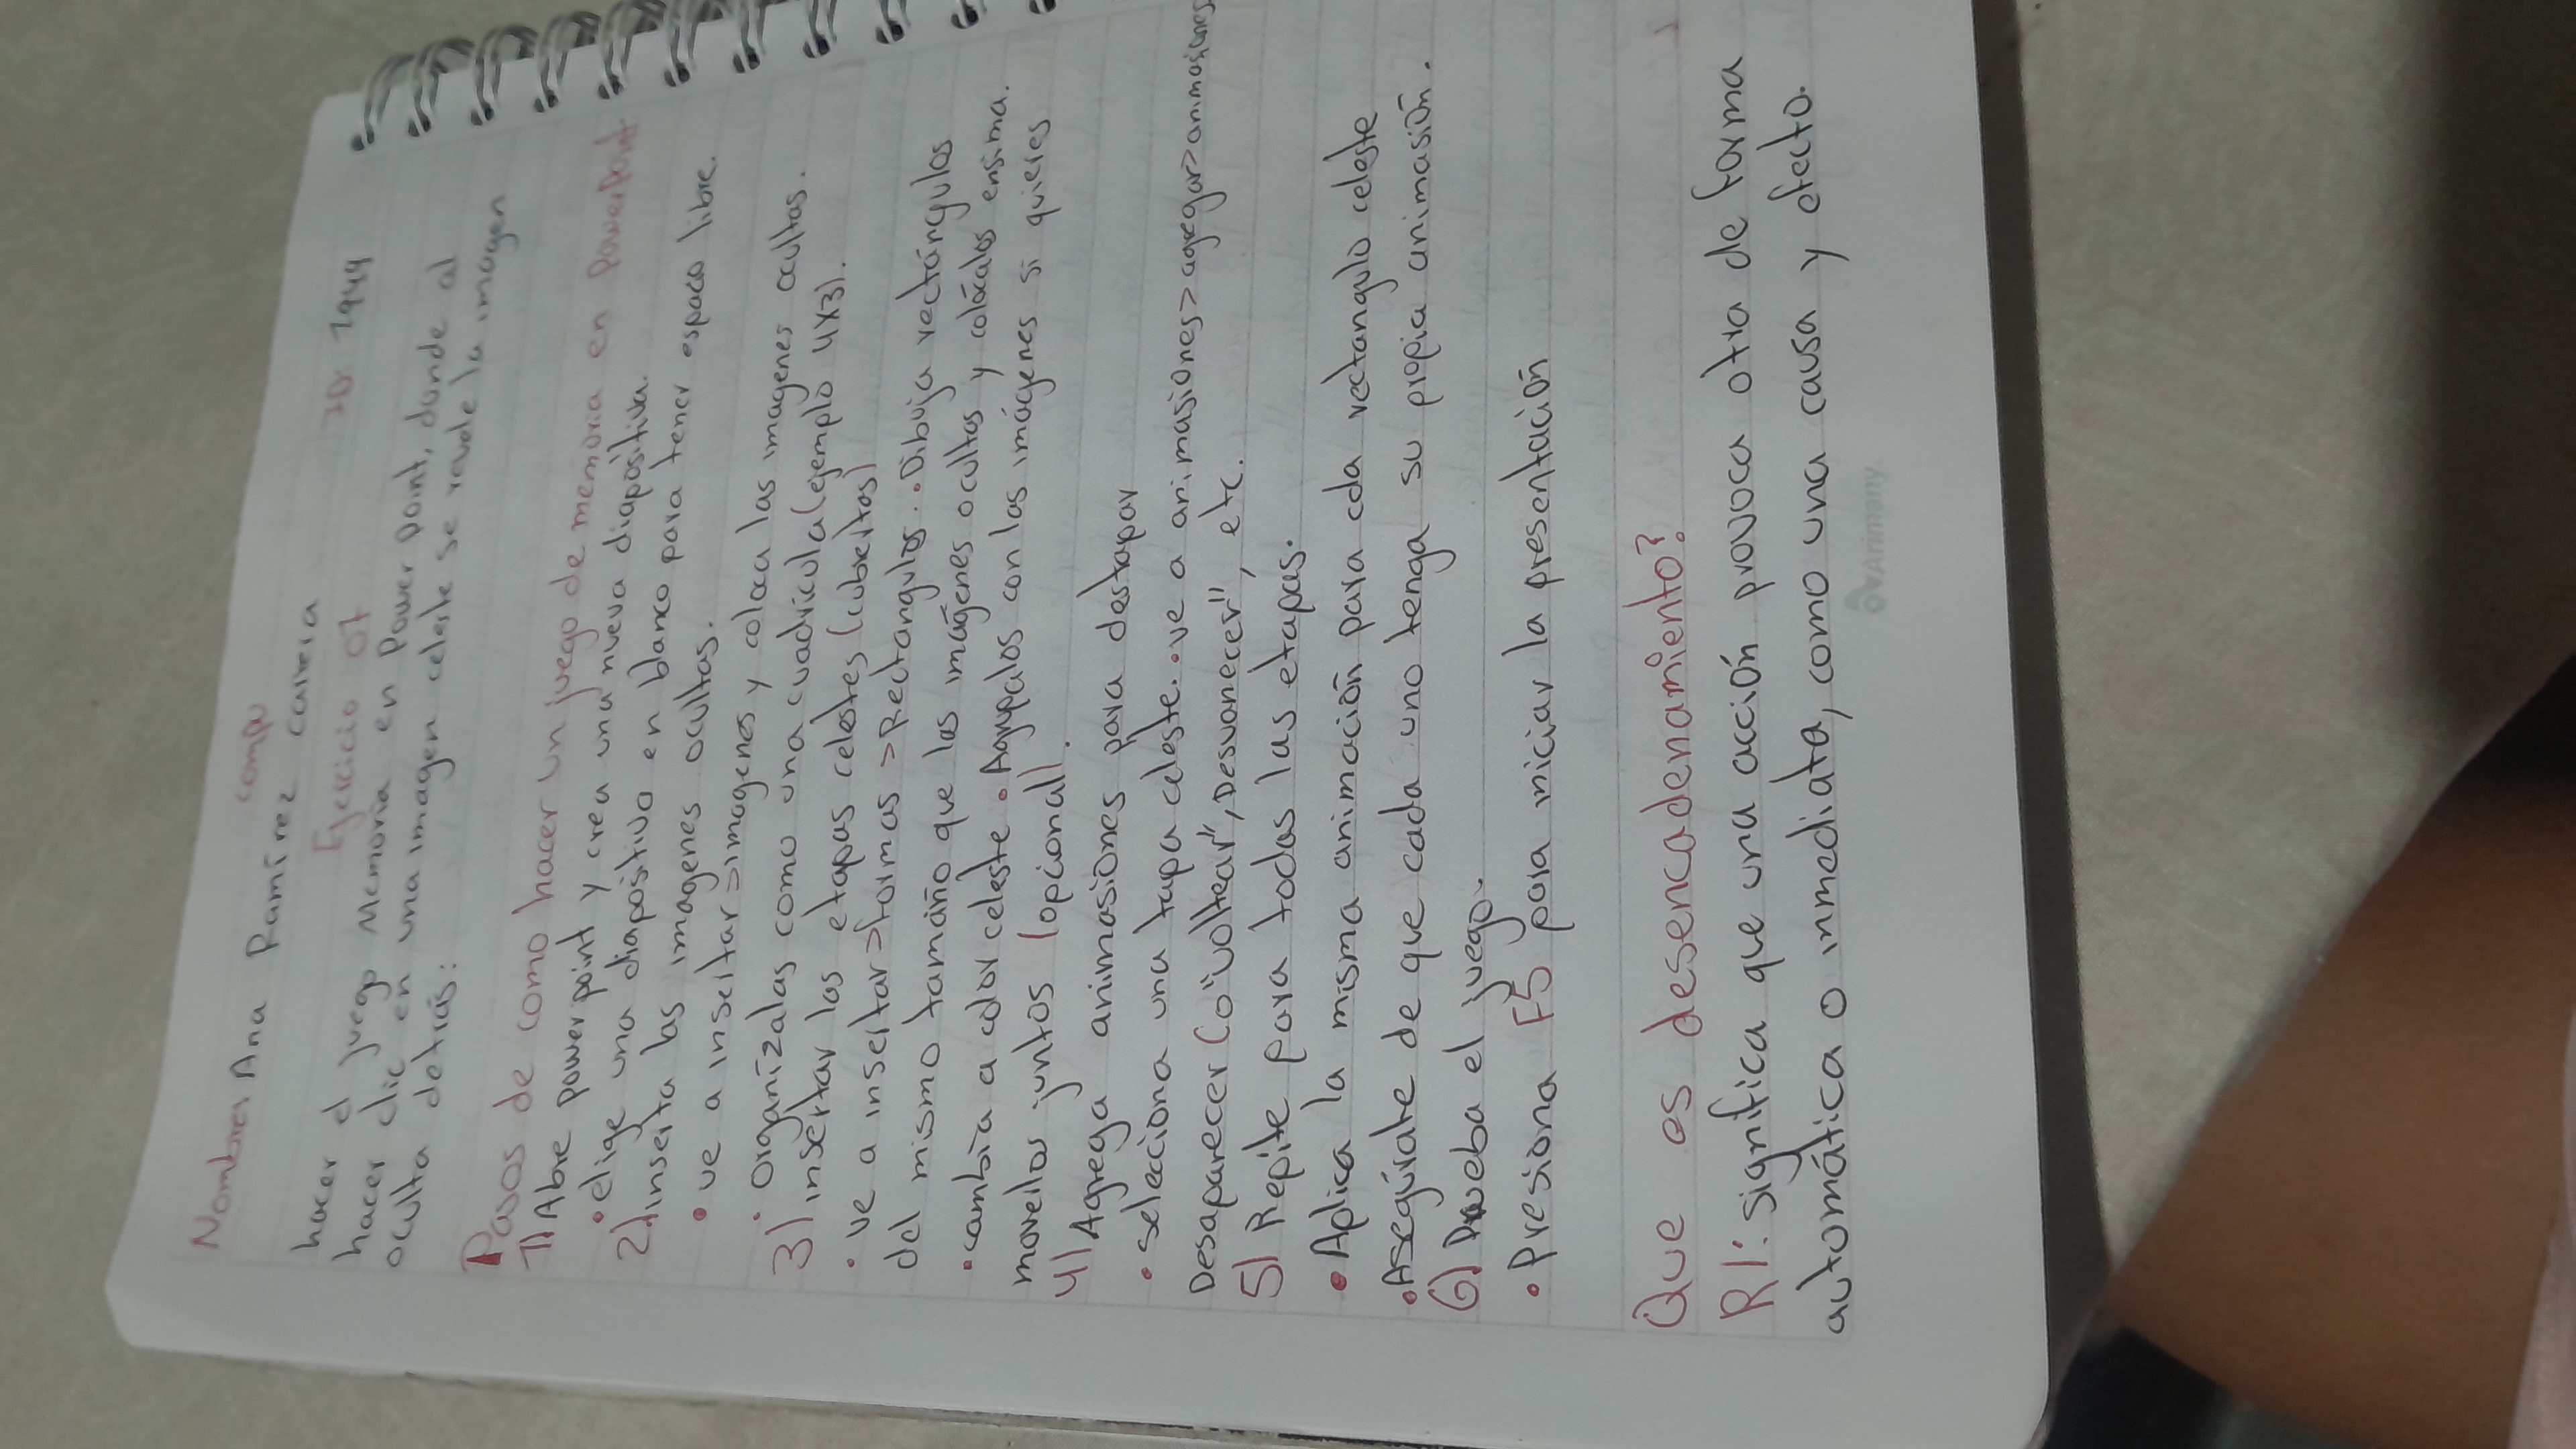 compu
Nombres Ana Ramírez carrera
Ejercicio 07 ID: 1944
hacer el juego Memoria en Power point, donde al
hacer clic en una imagen celeste se revele la imagen
oculta detrás:
Pasos de como hacer un juego de memoria en PowerPoint
1) Abre power point y crea una nueva diapositiva.
• elige una diapositiva en blanco para tener espaco libre.
2) inserta las imagenes ocultas.
• ve a insertar > imagenes y coloca las imagenes ocultas.
• Organízalas como una cuadrícula (ejemplo 4x3).
3) insertar las etapas celestes (cubertas)
• ve a insertar > formas > Rectangulos. • Dibuja rectángulos
del mismo tamaño que las imágenes ocultas y colócalos ensima.
• cambia a color celeste. • Agrupalos con las imágenes si quieres
moverlos juntos (opcional).
4) Agrega animasiones para destapar
• selecciona una tapa celeste. • ve a animasiones > agregar > animasiones
Desaparecer (o "voltear", Desvanecer", etc.
5) Repite para todas las etapas.
• Aplica la misma animación para cda rectangulo celeste
• Asegúrate de que cada uno tenga su propia animasión.
6) Prueba el juego.
• Presiona F5 para iniciar la presentación
Que es desencadenamiento?
R/: significa que una acción provoca otra de forma
automática o inmediata, como una causa y efecto.
Arimany